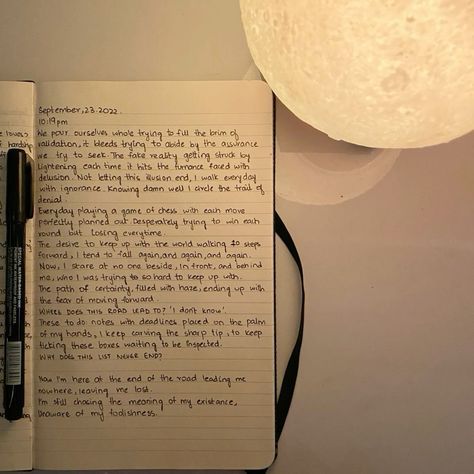 September, 23. 2022.
10:19pm
We pour ourselves whole trying to fill the brim of
validation, it bleeds trying to abide by the assurance
we try to seek. The fake reality getting struck by
lightening each time it hits the furnance faced with
delusion. Not letting this illusion end, I walk everyday
with ignorance. Knowing damn well I circle the trail of
denial.
Everyday playing a game of chess with each move
perfectly planned out. Desperately trying to win each
round but losing everytime.
The desire to keep up with the world walking 50 steps
forward, I tend to fall again, and again, and again.
Now, I stare at no one beside, in front, and behind
me, who I was trying so hard to keep up with.
The path of certainty, filled with haze, ending up with
the fear of moving forward.
WHERE DOES THIS ROAD LEAD TO? 'I don't know'.
These to do notes with deadlines placed on the palm
of my hands, I keep carving the sharp tip, to keep
ticking these boxes waiting to be inspected.
WHY DOES THIS LIST NEVER END?
Now I'm here at the end of the road leading me
nowhere, leaving me lost.
I'm still chasing the meaning of my existance,
Unaware of my foolishness.